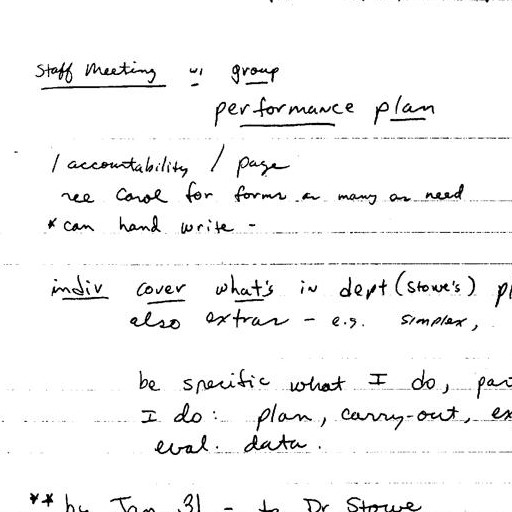 Staff Meeting w/ group
performance plan
1 accountability / page
see Carol for forms as many as need
* can hand write -
indiv cover what's in dept (Stowe's) pl
also extras - e.g. simplex,
be specific what I do, par
I do: plan, carry-out, ex
eval. data.
** by Jan 31 - to Dr Stowe